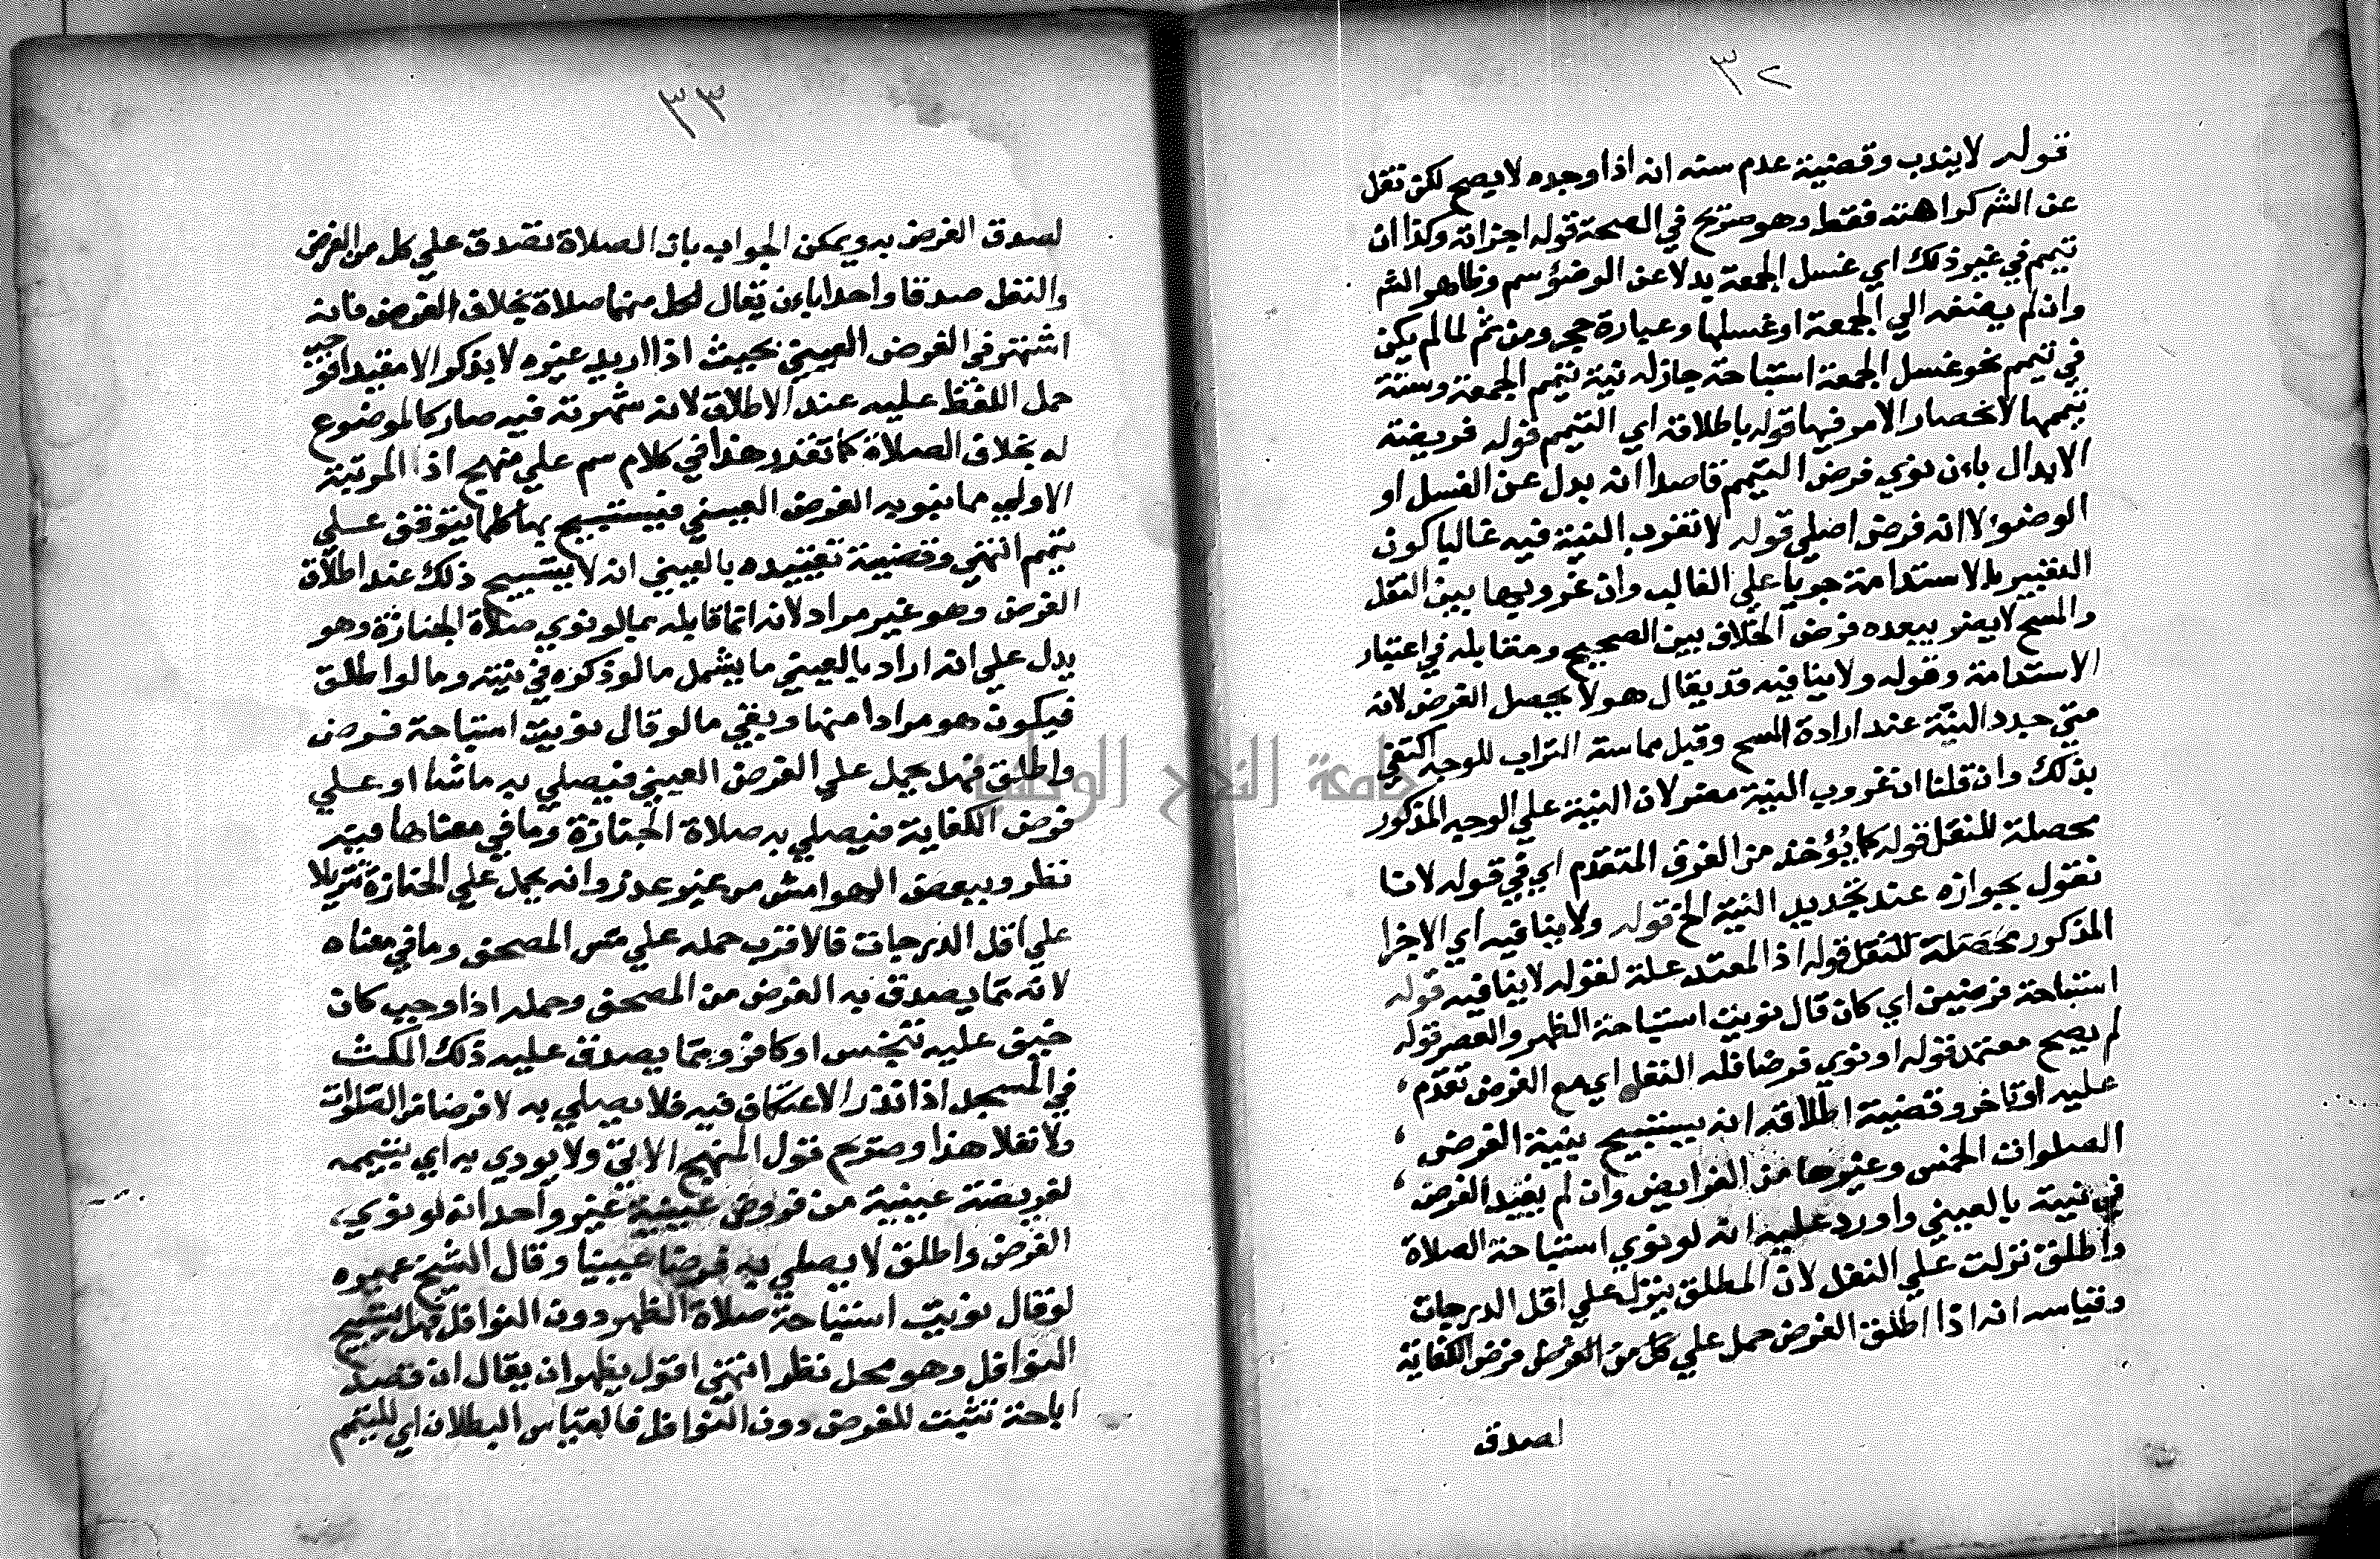 ٣٢
قوله لا يندب وقضية عدم سنه انه اذا وجده لا يصح لكن نقل
عن الشم كراهته فقط وهو صريح في الصحة قوله اجزاته وكذا ان
تيمم في غير ذلك اي غسل الجمعة بدلا عن الوضؤ سم وظاهر الشم
وان لم يضفه الي الجمعة او غسلها وعبارة حجر ومن ثم لما لم يكن
في تيمم نحو غسل الجمعة استباحة جاز له نية تيمم الجمعة وسنة
تيممها لانحصار الامر فيها قوله باطلاقه اي التيمم قوله فريضته
الابدال باءن نوي فرض التيمم قاصدا انه بدل عن الغسل او
الوضوء لا انه فرض اصلي قوله لا تعزب النية فيه غالبا كون
التعبير بالاستدامة جريا علي الغالب وان عزوبها بين النقل
والمسح لا يضر يبعده فرض الخلاف بين الصحيح ومقابله في اعتبار
الاستدامة وقوله ولا ينافيه قد يقال هو لا يحصل الغرض لانه
متي جدد النية عند ارادة المسح وقبل مماسة التراب للوجه اكتفي
بذلك وان قلنا ان عزوب النية مضر لان النية علي الوجه المذكور
محصلة للنقل قوله كما يؤخذ من الفرق المتقدم اي في قوله لانا
نقول يجوازه عند تجديد النية الخ قوله ولا ينافيه اي الاجزا
المذكور محصلة للنقل قوله اذ المعتد علة لقوله لا ينافيه قوله
استباحة فرضين اي كان قال نويت استباحة الظهر والعصر قوله
لم يصح معتمد قوله او نوي فرضا فله النفل اي مع الفرض تقدم
عليه او تاخر وقضية اطلاقه انه يستبيح بنية الفرض
الصلوات الخمس وغيرها من الفرايض وان لم يقيد الفرض
في نيته بالعيني واورد عليه انه لو نوي استباحة الصلاة
واطلق نزلت علي النفل لان المطلق ينزل علي اقل الدرجات
وقياسه انه اذا اطلق الفرض حمل علي كل من الفرض فرض الكفاية
لصدق
٣٣
لصدق الفرض به ويمكن الجواب بان الصلاة تصدق علي كل من الفرض
والنفل صدقا واحدا باءن يقال لكل منهما صلاة بخلاف الفرض فانه
اشتهر في الفرض العيني بحيث اذا اريد غيره لا يذكر الا مقيدا فوجب
حمل اللفظ عليه عند الاطلاق لانه شهرته فيه صار كالموضوع
له بخلاف الصلاة كما تقدر هذا في كلام سم علي منهج اذا المرتبة
الاولي مما ينويه الفرض العيني فيستبيح بها كلما يتوقف علي
تيمم انتهي وقضية تقييده بالعيني انه لا يستبيح ذلك عند اطلاق
الفرض وهو غير مراد لانه انما قابله بما لو نوي صلاة الجنازة وهو
يدل علي انه اراد بالعيني ما يشمل ما لو ذكره في نيته وما لو اطلق
فيكون هو مرادا منها وبقي ما لو قال نويت استباحة فرض
واطلق فهل يحمل علي الفرض العيني فيصلي به ما شا او علي
فرض الكفاية فيصلي به صلاة الجنازة وما في معناها فيه
نظر وببعض الهوامش من غير عزو انه يحمل علي الجنازة تنزيلا
علي اقل الدرجات فالاقرب حمله علي مس المصحف وما في معناه
لانه مما يصدق به الفرض من المصحف وحمله اذا وجب كان
خيف عليه تنجس او كافر ومما يصدق عليه ذلك المكث
في المسجد اذا نذر الاعتكاف فيه فلا يصلي به لا فرضا من الصلوات
ولا نفلا هذا وصريح قول المنهج الاتي ولا يودي به اي بتيممه
لفريضة عينية من فروض عينية غير واحد انه لو نوي
الفرض واطلق لا يصلي به فرضا عينيا وقال الشيخ عميره
لو قال نويت استباحة صلاة الظهر دون النوافل فهل يستبيح
النوافل وهو محل نظر انتهي اقول يظهر ان يقال ان قصد
اباحة تثبت للفرض دون النوافل فالقياس البطلان اي للتيمم